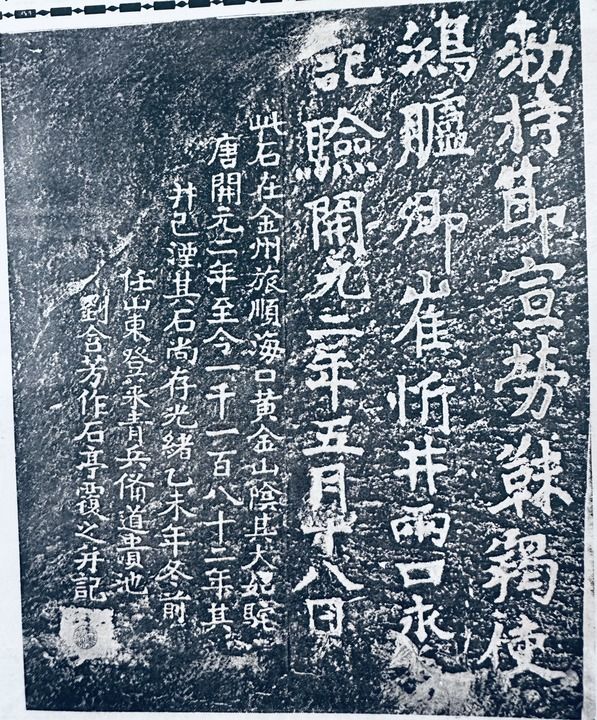 勅持節宣勞靺鞨使
鴻臚卿崔忻井兩口永
記驗開元二年五月十八日
此石在金州旅順海口黃金山陰其大如駝
唐開元二年至今一千一百八十二年其
井已湮其石尚存光緒乙未年冬前
任山東登萊青兵備道貴池
劉含芳作石亭覆之并記